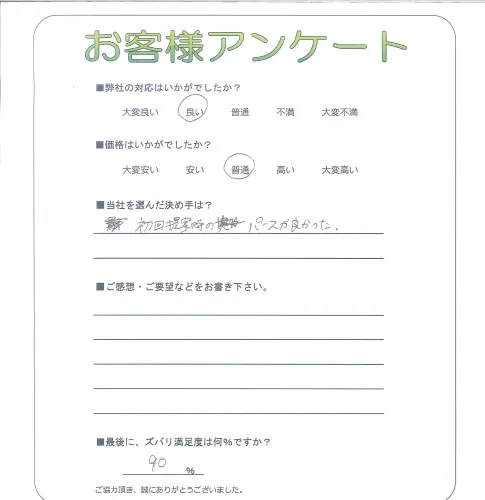 お客様アンケート
■弊社の対応はいかがでしたか？
大変良い 良い 普通 不満 大変不満
■価格はいかがでしたか？
大変安い 安い 普通 高い 大変高い
■当社を選んだ決め手は？
初回提案時の パースが良かった。
■ご感想・ご要望などをお書き下さい。
■最後に、ズバリ満足度は何％ですか？
90 ％
ご協力頂き、誠にありがとうございました。